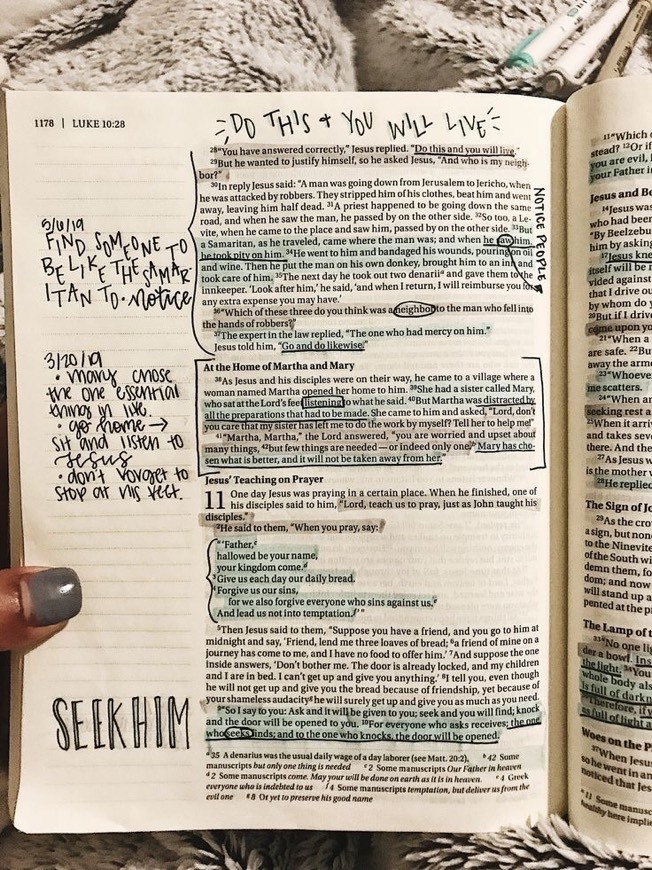 1178 | LUKE 10:28
DO THIS + YOU WILL LIVE
28"You have answered correctly," Jesus replied. "Do this and you will live."
29But he wanted to justify himself, so he asked Jesus, "And who is my neigh-
bor?"
30In reply Jesus said: "A man was going down from Jerusalem to Jericho, when
he was attacked by robbers. They stripped him of his clothes, beat him and went
away, leaving him half dead. 31A priest happened to be going down the same
road, and when he saw the man, he passed by on the other side. 32So too, a Le-
vite, when he came to the place and saw him, passed by on the other side. 33But
a Samaritan, as he traveled, came where the man was; and when he saw him,
he took pity on him. 34He went to him and bandaged his wounds, pouring on oil
and wine. Then he put the man on his own donkey, brought him to an inn and
took care of him. 35The next day he took out two denarii a and gave them to the
innkeeper. 'Look after him,' he said, 'and when I return, I will reimburse you for
any extra expense you may have.'
36"Which of these three do you think was a neighbor to the man who fell into
the hands of robbers?"
37The expert in the law replied, "The one who had mercy on him."
Jesus told him, "Go and do likewise."
NOTICE PEOPLE
5/6/19
FIND SOMEONE TO
BE LIKE THE SAMAR
ITAN TO · notice
At the Home of Martha and Mary
38As Jesus and his disciples were on their way, he came to a village where a
woman named Martha opened her home to him. 39She had a sister called Mary,
who sat at the Lord's feet listening to what he said. 40But Martha was distracted by
all the preparations that had to be made. She came to him and asked, "Lord, don't
you care that my sister has left me to do the work by myself? Tell her to help me!"
41"Martha, Martha," the Lord answered, "you are worried and upset about
many things, 42but few things are needed—or indeed only one. b Mary has cho-
sen what is better, and it will not be taken away from her."
3/20/19
• mary chose
the one essential
thing in live.
• go home →
sit and listen to
Jesus
• don't forget to
stop at his feet.
Jesus' Teaching on Prayer
11 One day Jesus was praying in a certain place. When he finished, one of
his disciples said to him, "Lord, teach us to pray, just as John taught his
disciples."
2He said to them, "When you pray, say:
"'Father, c
hallowed be your name,
your kingdom come. d
3Give us each day our daily bread.
4Forgive us our sins,
for we also forgive everyone who sins against us. e
And lead us not into temptation. f'"
5Then Jesus said to them, "Suppose you have a friend, and you go to him at
midnight and say, 'Friend, lend me three loaves of bread; 6a friend of mine on a
journey has come to me, and I have no food to offer him.' 7And suppose the one
inside answers, 'Don't bother me. The door is already locked, and my children
and I are in bed. I can't get up and give you anything.' 8I tell you, even though
he will not get up and give you the bread because of friendship, yet because of
your shameless audacity g he will surely get up and give you as much as you need.
9"So I say to you: Ask and it will be given to you; seek and you will find; knock
and the door will be opened to you. 10For everyone who asks receives; the one
who seeks finds; and to the one who knocks, the door will be opened.
SEEK HIM
a 35 A denarius was the usual daily wage of a day laborer (see Matt. 20:2). b 42 Some
manuscripts but only one thing is needed c 2 Some manuscripts Our Father in heaven
d 2 Some manuscripts come. May your will be done on earth as it is in heaven. e 4 Greek
everyone who is indebted to us f 4 Some manuscripts temptation, but deliver us from the
evil one g 8 Or yet to preserve his good name
11"Which o
stead? 12Or if
you are evil,
your Father i
Jesus and Be
14Jesus was
who had been
"By Beelzebu
him by asking
17Jesus knew
itself will be r
vided against
that I drive ou
by whom do y
20But if I drive
come upon yo
21"When a
are safe. 22Bu
away the arm
23"Whoeve
me scatters.
24"When an
seeking rest a
25When it arriv
and takes seve
of that person
27As Jesus w
is the mother
28He replied
The Sign of Jo
29As the crow
a sign, but none
to the Ninevite
of the South wi
demn them, for
dom; and now
will stand up a
pented at the p
The Lamp of t
33"No one lig
der a bowl. Ins
the light. 34You
whole body als
is full of darkn
36Therefore, if y
as full of light a
Woes on the P
37When Jesus
so he went in an
noticed that Jes
a 11 Some manusc
healthy here implie